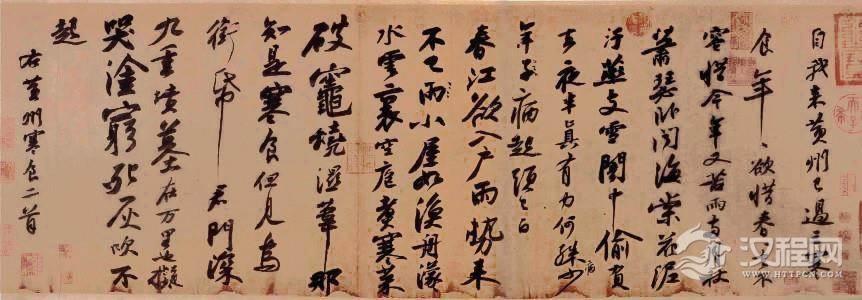 自我来黄州已過三寒
食年〻欲惜春春去不
容惜今年又苦雨兩月秋
蕭瑟卧聞海棠花泥
汙燕支雪闇中偷負
去夜半真有力何殊病少
年子病起頭已白
春江欲入户雨勢来
不已雨小屋如漁舟濛〻
水雲裏空庖煮寒菜
破竈燒濕葦那
知是寒食但見烏
銜帋君門深
九重墳墓在万里也擬
哭塗窮死灰吹不
起
右黄州寒食二首
汉程网
HTTPCN.COM